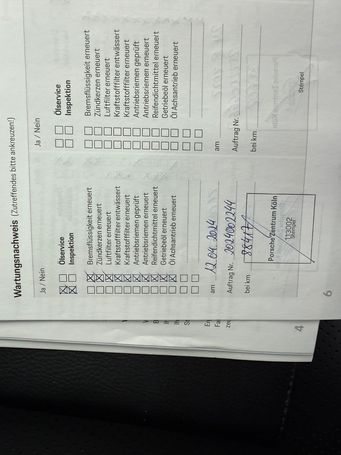 Wartungsnachweis (Zutreffendes bitte ankreuzen!)
Ja / Nein
Ölservice
Inspektion
Bremsflüssigkeit erneuert
Zündkerzen erneuert
Luftfilter erneuert
Kraftstofffilter entwässert
Kraftstofffilter erneuert
Antriebsriemen geprüft
Antriebsriemen erneuert
Reifendichtmittel erneuert
Getriebeöl erneuert
Öl Achsantrieb erneuert
am 12.04.2024
Auftrag Nr.
bei km
Porsche Zentrum Köln
113002
Stempel
Ja / Nein
Ölservice
Inspektion
Bremsflüssigkeit erneuert
Zündkerzen erneuert
Luftfilter erneuert
Kraftstofffilter entwässert
Kraftstofffilter erneuert
Antriebsriemen geprüft
Antriebsriemen erneuert
Reifendichtmittel erneuert
Getriebeöl erneuert
Öl Achsantrieb erneuert
am
Auftrag Nr.
bei km
Stempel
6
4